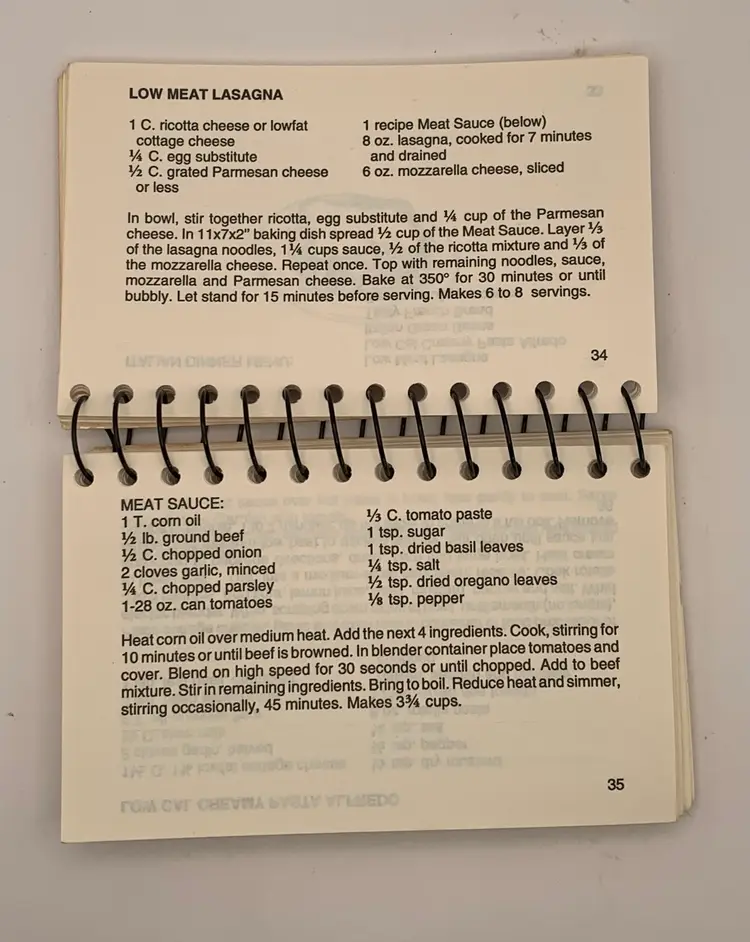 LOW MEAT LASAGNA
1 C. ricotta cheese or lowfat
cottage cheese
¼ C. egg substitute
½ C. grated Parmesan cheese
or less
1 recipe Meat Sauce (below)
8 oz. lasagna, cooked for 7 minutes
and drained
6 oz. mozzarella cheese, sliced
In bowl, stir together ricotta, egg substitute and ¼ cup of the Parmesan
cheese. In 11x7x2" baking dish spread ½ cup of the Meat Sauce. Layer ⅓
of the lasagna noodles, 1¼ cups sauce, ½ of the ricotta mixture and ⅓ of
the mozzarella cheese. Repeat once. Top with remaining noodles, sauce,
mozzarella and Parmesan cheese. Bake at 350° for 30 minutes or until
bubbly. Let stand for 15 minutes before serving. Makes 6 to 8 servings.
34
MEAT SAUCE:
1 T. corn oil
½ lb. ground beef
½ C. chopped onion
2 cloves garlic, minced
¼ C. chopped parsley
1-28 oz. can tomatoes
⅓ C. tomato paste
1 tsp. sugar
1 tsp. dried basil leaves
¼ tsp. salt
½ tsp. dried oregano leaves
⅛ tsp. pepper
Heat corn oil over medium heat. Add the next 4 ingredients. Cook, stirring for
10 minutes or until beef is browned. In blender container place tomatoes and
cover. Blend on high speed for 30 seconds or until chopped. Add to beef
mixture. Stir in remaining ingredients. Bring to boil. Reduce heat and simmer,
stirring occasionally, 45 minutes. Makes 3¾ cups.
35